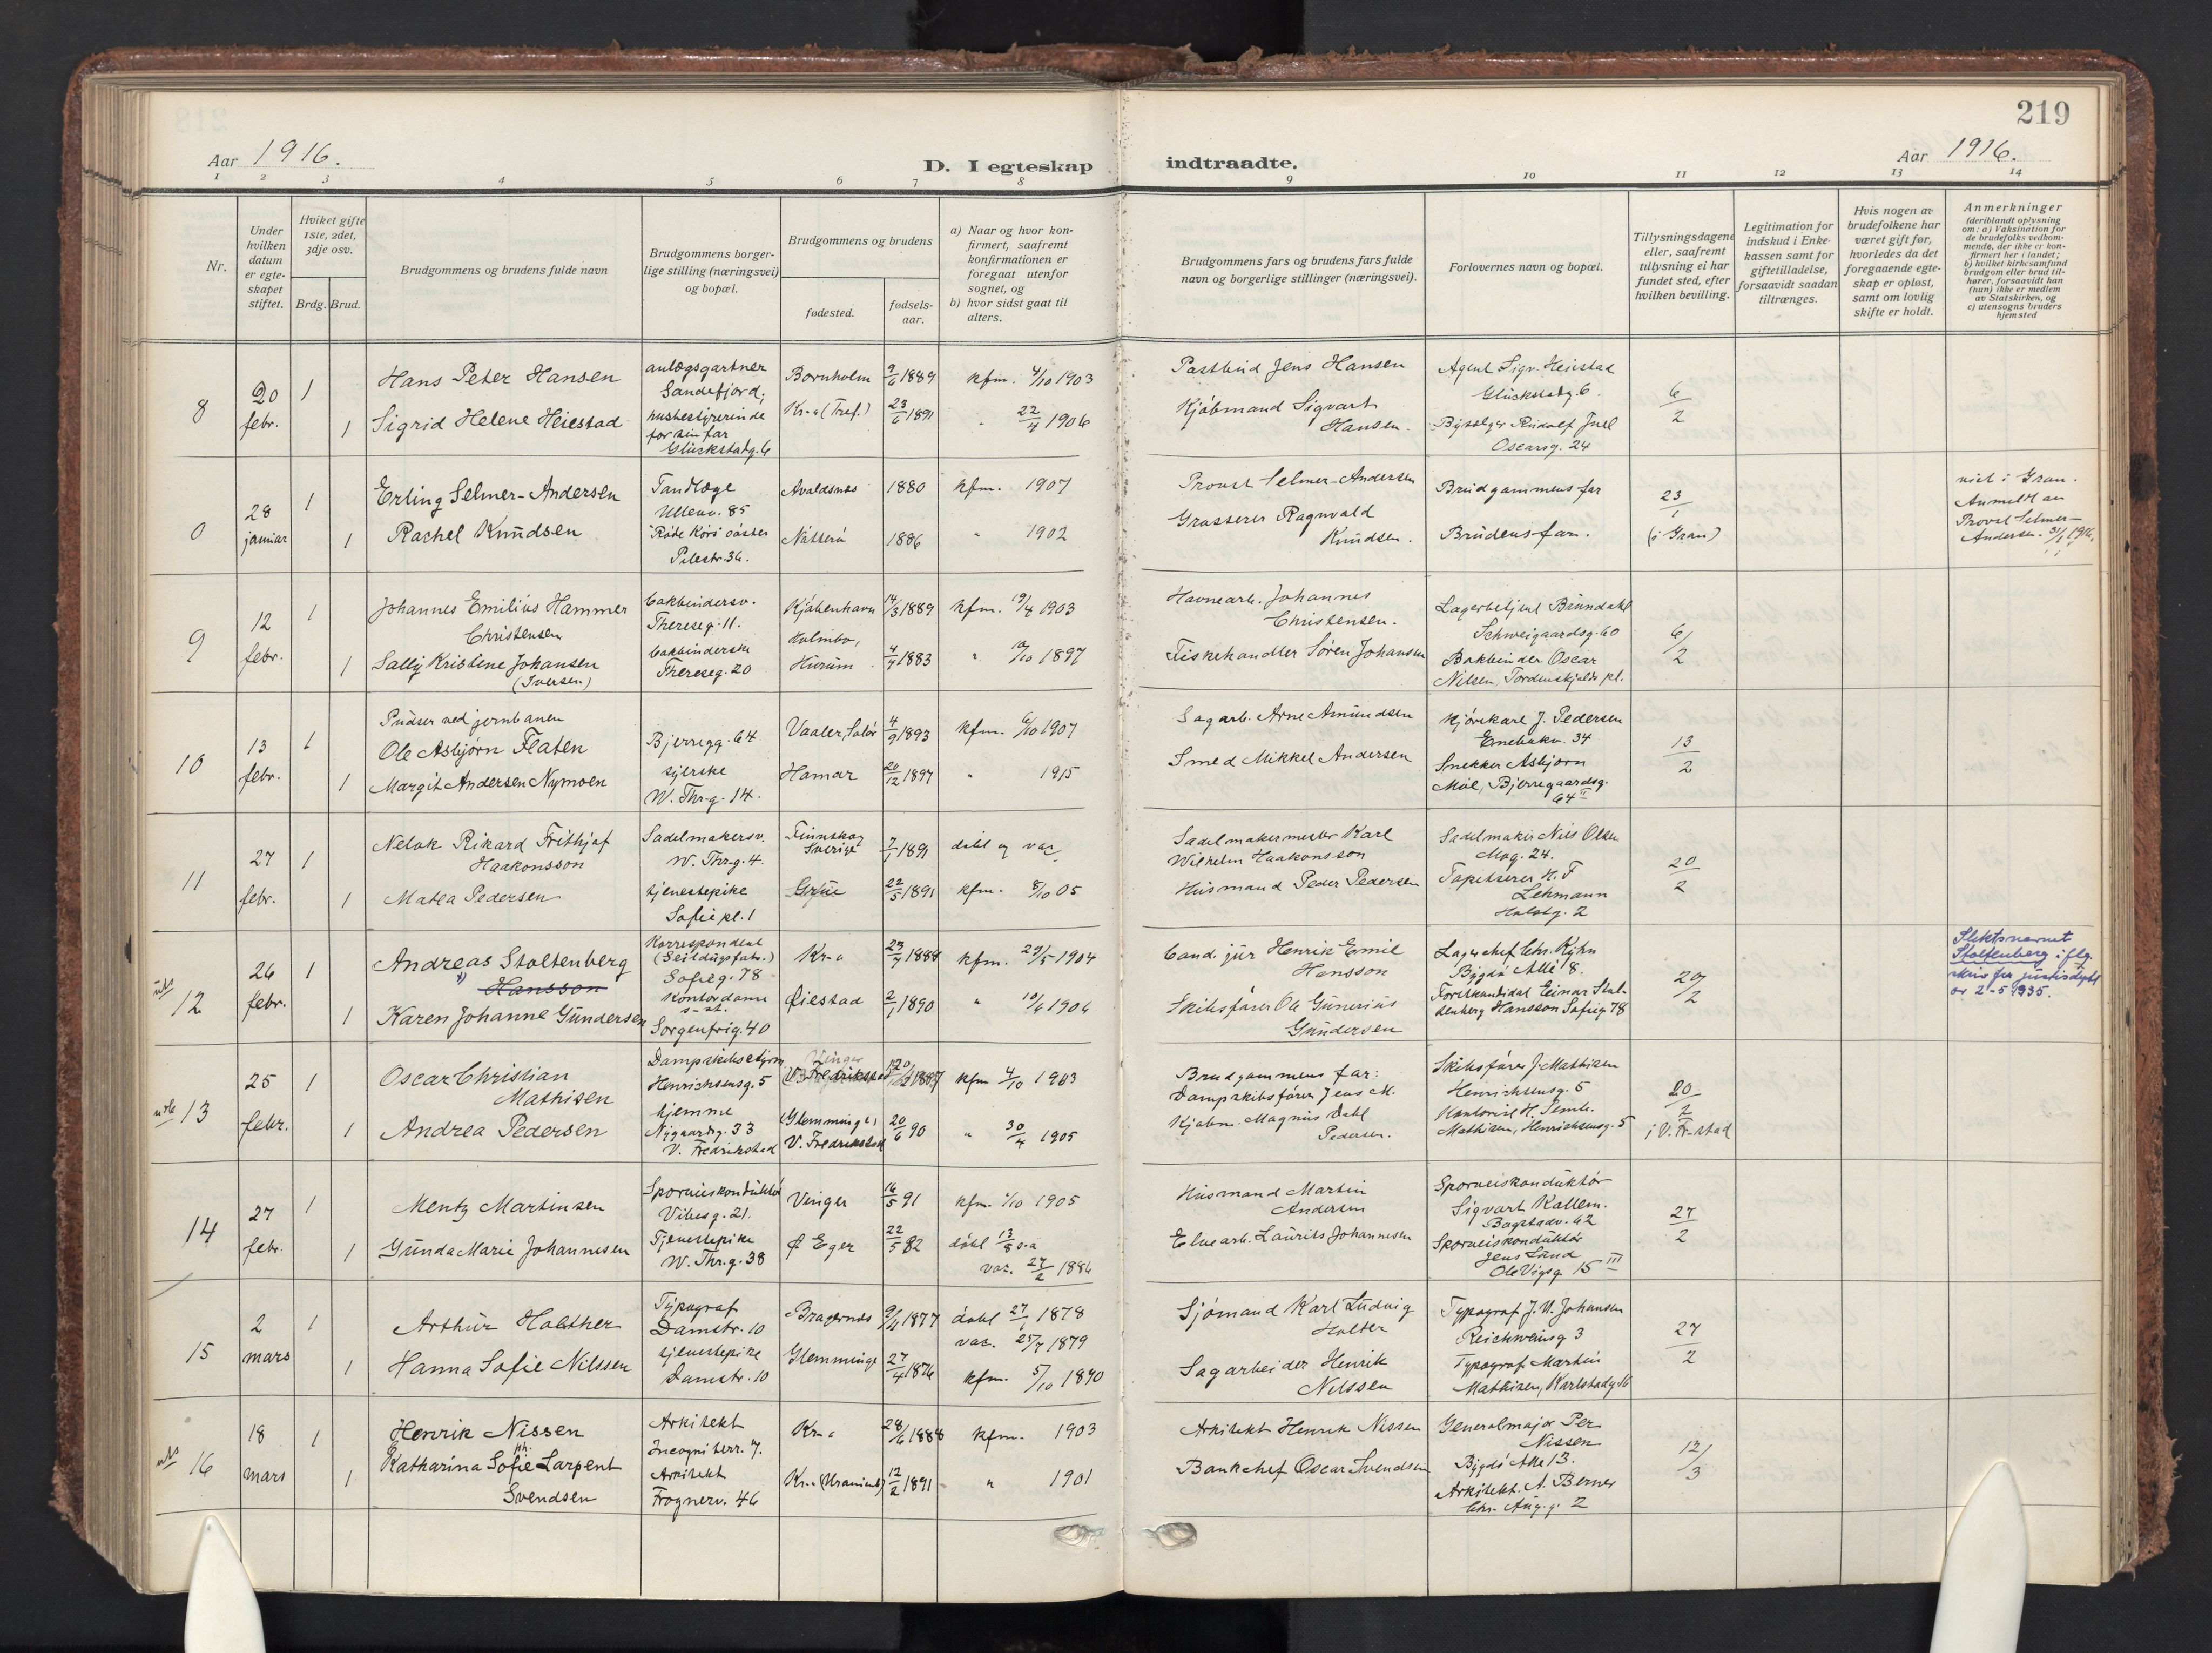 219
Aar 1916.
D. I egteskap
indtraadte.
Aar 1916.
1 2 3 4 5 6 7 8 9 10 11 12 13 14
Nr.
Under hvilken datum er egteskapet stiftet.
Hviket gifte 1ste, 2det, 3dje osv.
Brdg. Brud.
Brudgommens og brudens fulde navn
Brudgommens borgerlige stilling (næringsvei) og bopæl.
Brudgommens og brudens
fødested.
fødselsaar.
a) Naar og hvor konfirmert, saafremt konfirmationen er foregaat utenfor sognet, og
b) hvor sidst gaat til alters.
Brudgommens fars og brudens fars fulde navn og borgerlige stillinger (næringsvei).
Forlovernes navn og bopæl.
Tillysningsdagene eller, saafremt tillysning ei har fundet sted, efter hvilken bevilling.
Legitimation for indskud i Enkekassen samt for giftetilladelse, forsaavidt saadan tiltrænges.
Hvis nogen av brudefolkene har været gift før, hvorledes da det foregaaende egteskap er opløst, samt om lovlig skifte er holdt.
Anmerkninger
(deriblandt oplysning om: a) Vaksination for de brudefolks vedkommende, der ikke er konfirmert her i landet; b) hvilket kirkesamfund brudgom eller brud tilhører, forsaavidt han (hun) ikke er medlem av Statskirken, og c) utensogns bruders hjemsted
8
20 febr.
1
Hans Peter Hansen
anlægsgartner Sandefjord,
Bornholm 9/6 1889
kfm. 4/10 1903
Postbud Jens Hansen
Agent Sigv. Heiestad
Glückstadg. 6.
6/2
1
Sigrid Helene Heiestad
husbestyrerinde for sin far
Glückstadg. 6
Kr-a (Tref.) 23/6 1891
" 22/4 1906
Kjøbmand Sigvart Hansen.
Rudolf Juel
Oscarsg. 24
0
28 januar
1
Erling Selmer-Andersen
Tandlæge
Ullevv. 85
Avaldsnes 1880
kfm. 1907
Provst Selmer-Andersen
Brudgommens far
23/1
(i Gran)
viet i Gran.
Anmeldt av
Provst Selmer-
Andersen. 31/1 1916.
1
Rachel Knudsen
"Røde Kors" søster
Pilestr. 36.
Nøtterø 1886
" 1902
Grosserer Ragnvald Knudsen.
Brudens far.
9
12 febr.
1
Johannes Emilius Hammer
Christensen
bokbindersv.
Thereseg. 11.
Kjøbenhavn 14/3 1889
kfm. 19/4 1903
Havnearb. Johannes Christensen.
Lagerbetjent Brundahl
Schweigaardsg. 60
6/2
1
Sally Kristine Johansen
(Iversen)
bokbinderske
Thereseg. 20
Holmbo, Hurum 4/7 1883
" 10/10 1897
Fiskehandler Søren Johansen
Bokbinder Oscar
Nilsen, Tordenskjolds pl.
10
13 febr.
1
Pudser ved jernbanen
Ole Asbjørn Flaten
Bjerregg. 64
Vaaler, Solør 4/9 1893
kfm. 6/10 1907
Sagarb. Arne Amundsen
Kjørekarl J. Pedersen
Enebakv. 34
13/2
1
Margit Andersen Nymoen
syerske
W. Thr-g. 14.
Hamar 20/12 1897
" 1915
Smed Mikkel Andersen
Snekker Asbjørn
Moe, Bjerregaardsg.
64 II
11
27 febr.
1
Nelok Rikard Frithjof
Haakonsson
Sadelmakersv.
W. Thr-g. 4.
Finnskog Sverige 7/1 1891
døbt og vac.
Sadelmakermester Karl
Wilhelm Haakonsson
Sadelmaker Nils Olsen
Mog. 24.
20/2
1
Matea Pedersen
tjenestepike
Sofie pl. 1
Grue 22/5 1891
kfm. 8/10 05
Husmand Peder Pedersen
Tapetserer H. F
Lehmann
Holstg. 2
12
26 febr.
1
Andreas Stoltenberg
Hansson
Korrespondent
(Seildugsfabr.)
Sofieg. 78
Kr-a 23/7 1888
kfm. 29/5 1904
Cand. jur Henrik Emil
Hansson
Lagerchef Chr. Kyhn
Bygdø Allé 8.
20/2
Slektsnavnet
Stoltenberg iflg.
skriv fra justisdept
av 2-5 1935.
1
Karen Johanne Gundersen
Kontordame
s-st.
Sorgenfrig. 40
Øiestad 2/1 1890
" 10/6 1906
Skibsfører Ole Gunerius
Gundersen
Forstkandidat Einar Stoltenberg Hansson Sofieg 78
13
25 febr.
1
Oscar Christian
Mathisen
Dampskibsstyrm
Henrichsensg. 5
V. Fredrikstad
kfm 4/10 1903
Brudgommens far:
Dampskibsfører Jens M.
Skibsfører J. Mathisen
Henrichsensg. 5
20/2
i V. Fr-stad
1
Andrea Pedersen
hjemme
Nygaardsg. 33
V. Fredrikstad
(Glemminge)
V. Fredrikstad 20/6 90
" 30/4 1905
Kjøbm. Magnus Dahl
Pedersen.
Kontorist H. Semb.
Mathisen, Henrichsensg. 5
14
27 febr.
1
Mentz Martinsen
Sporveiskonduktør
Vibesg. 21.
Vinger 16/5 91
kfm. 1/10 1905
Husmand Martin
Andersen
Sporveiskonduktør
Sigvart Kollem.
Bogstadv. 62
27/2
1
Gunda Marie Johannesen
Tjenestepike
W. Thr.g. 38
Ø Eger 22/5 82
døbt 13/8 s.a
vac. 27/2 1886
Elvearb. Laurits Johannesen
Sporveiskonduktør
Jens Sand
Ole Vigsg 15 III
15
2 mars
1
Arthur Holther
Typograf
Damstr. 10
Bragernes 9/11 1877
døbt 27/1 1878
vac. 25/7 1879
Sjømand Karl Ludvig
Holter
Typograf J. W. Johansen
Reichweinsg 3
27/2
1
Hanna Sofie Nilssen
tjenestepike
Damstr. 10
Glemminge 27/4 1876
kfm. 5/10 1890
Sagarbeider Henrik
Nilssen
Typograf Martin
Mathisen, Karlstadg. 16
16
18 mars
1
Henrik Nissen
Arkitekt
Incogniterr. 7.
Kr-a 28/6 1888
kfm. 1903
Arkitekt Henrik Nissen
Generalmajor Per
Nissen
Bygdø Alle 13.
12/3
1
Katharina Sofie Larpent
Svendsen
Arkitekt
Frognerv. 46
Kr-a (Uranienb) 12/2 1891
" 1901
Bankchef Oscar Svendsen
Arkitekt. A. Berner
Chr. Aug. g. 2